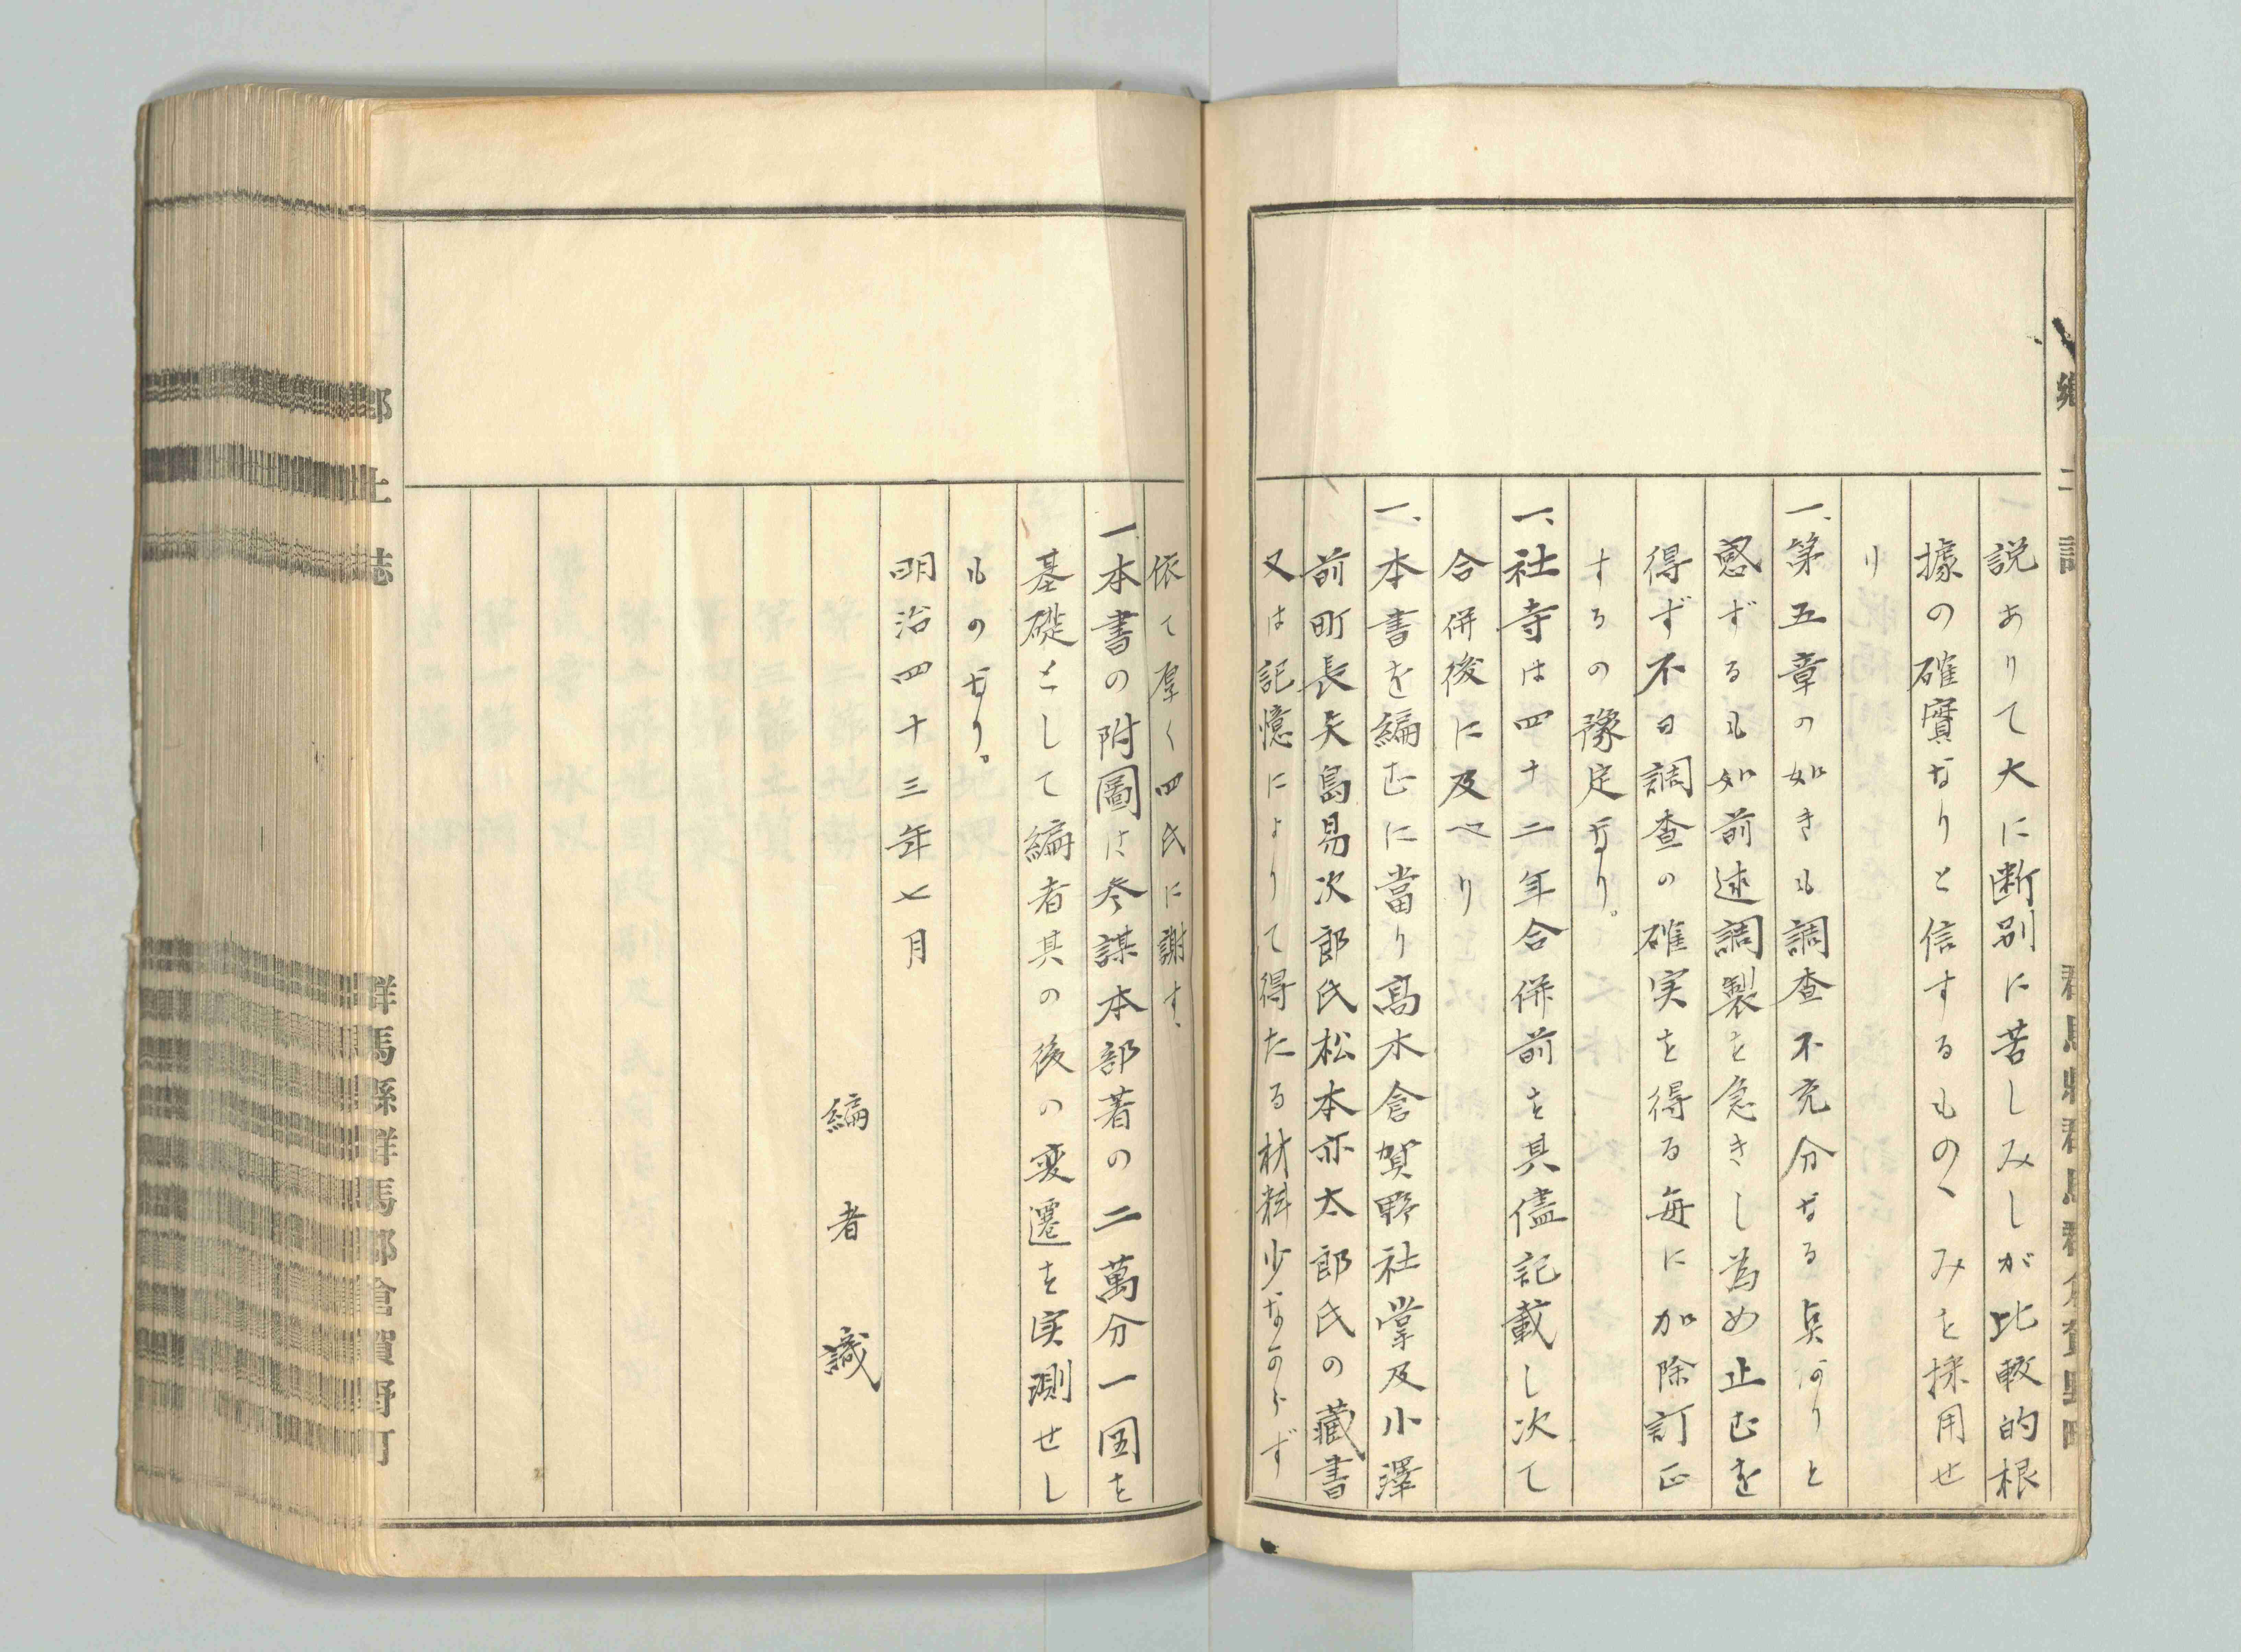 説ありて大に断別に苦しみしが比較的根
據の確實なりと信するものゝみを採用せ
り
一、第五章の如きも調査不充分なる点何りと
感ずるも如前述調製を急きし為め止むを
得ず不日調査の確実を得る毎に加除訂正
するの豫定なり。
一、社寺は四十二年合併前を具儘記載し次て
合併後に及べり
一、本書を編むに當り髙木倉賀野社掌及小澤
前町長矢島易次郎氏松本亦太郎氏の藏書
又は記憶によりて得たる材料少なからず
依て厚く四氏に謝す、
一、本書の附圖は参謀本部著の二萬分一図を
基礎として編者其の後の変遷を実測せし
ものなり。
明治四十三年七月
編者識
郷土誌
群馬縣群馬郡倉賀野町